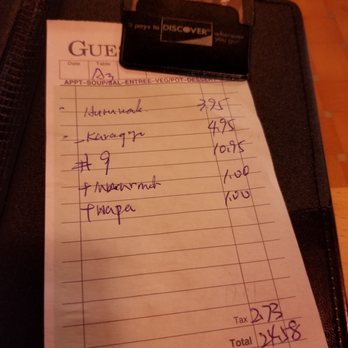 It pays to DISCOVER
GUES
Date Table
A3
APPT-SOUP/SAL-ENTREE-VEG/POT-DESSERT
3.95
Karaage 4.95
#9 10.95
+ 1.00
+ Wapa 1.00
Tax 2.73
Total 24.58